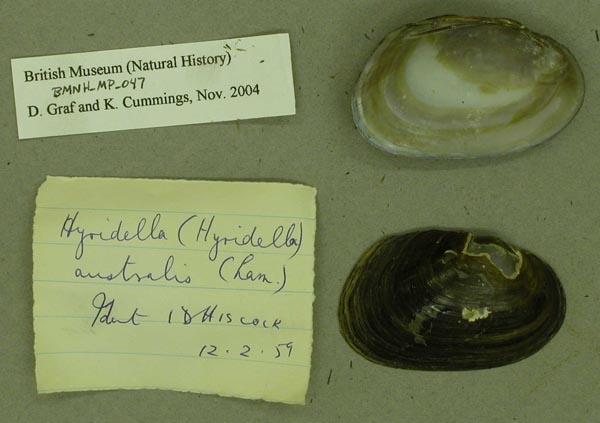 British Museum (Natural History)
BMNH_MP_047
D. Graf and K. Cummings, Nov. 2004
Hyridella (Hyridella)
australis (Lam.)
Ident I D HISCOCK
12.2.59